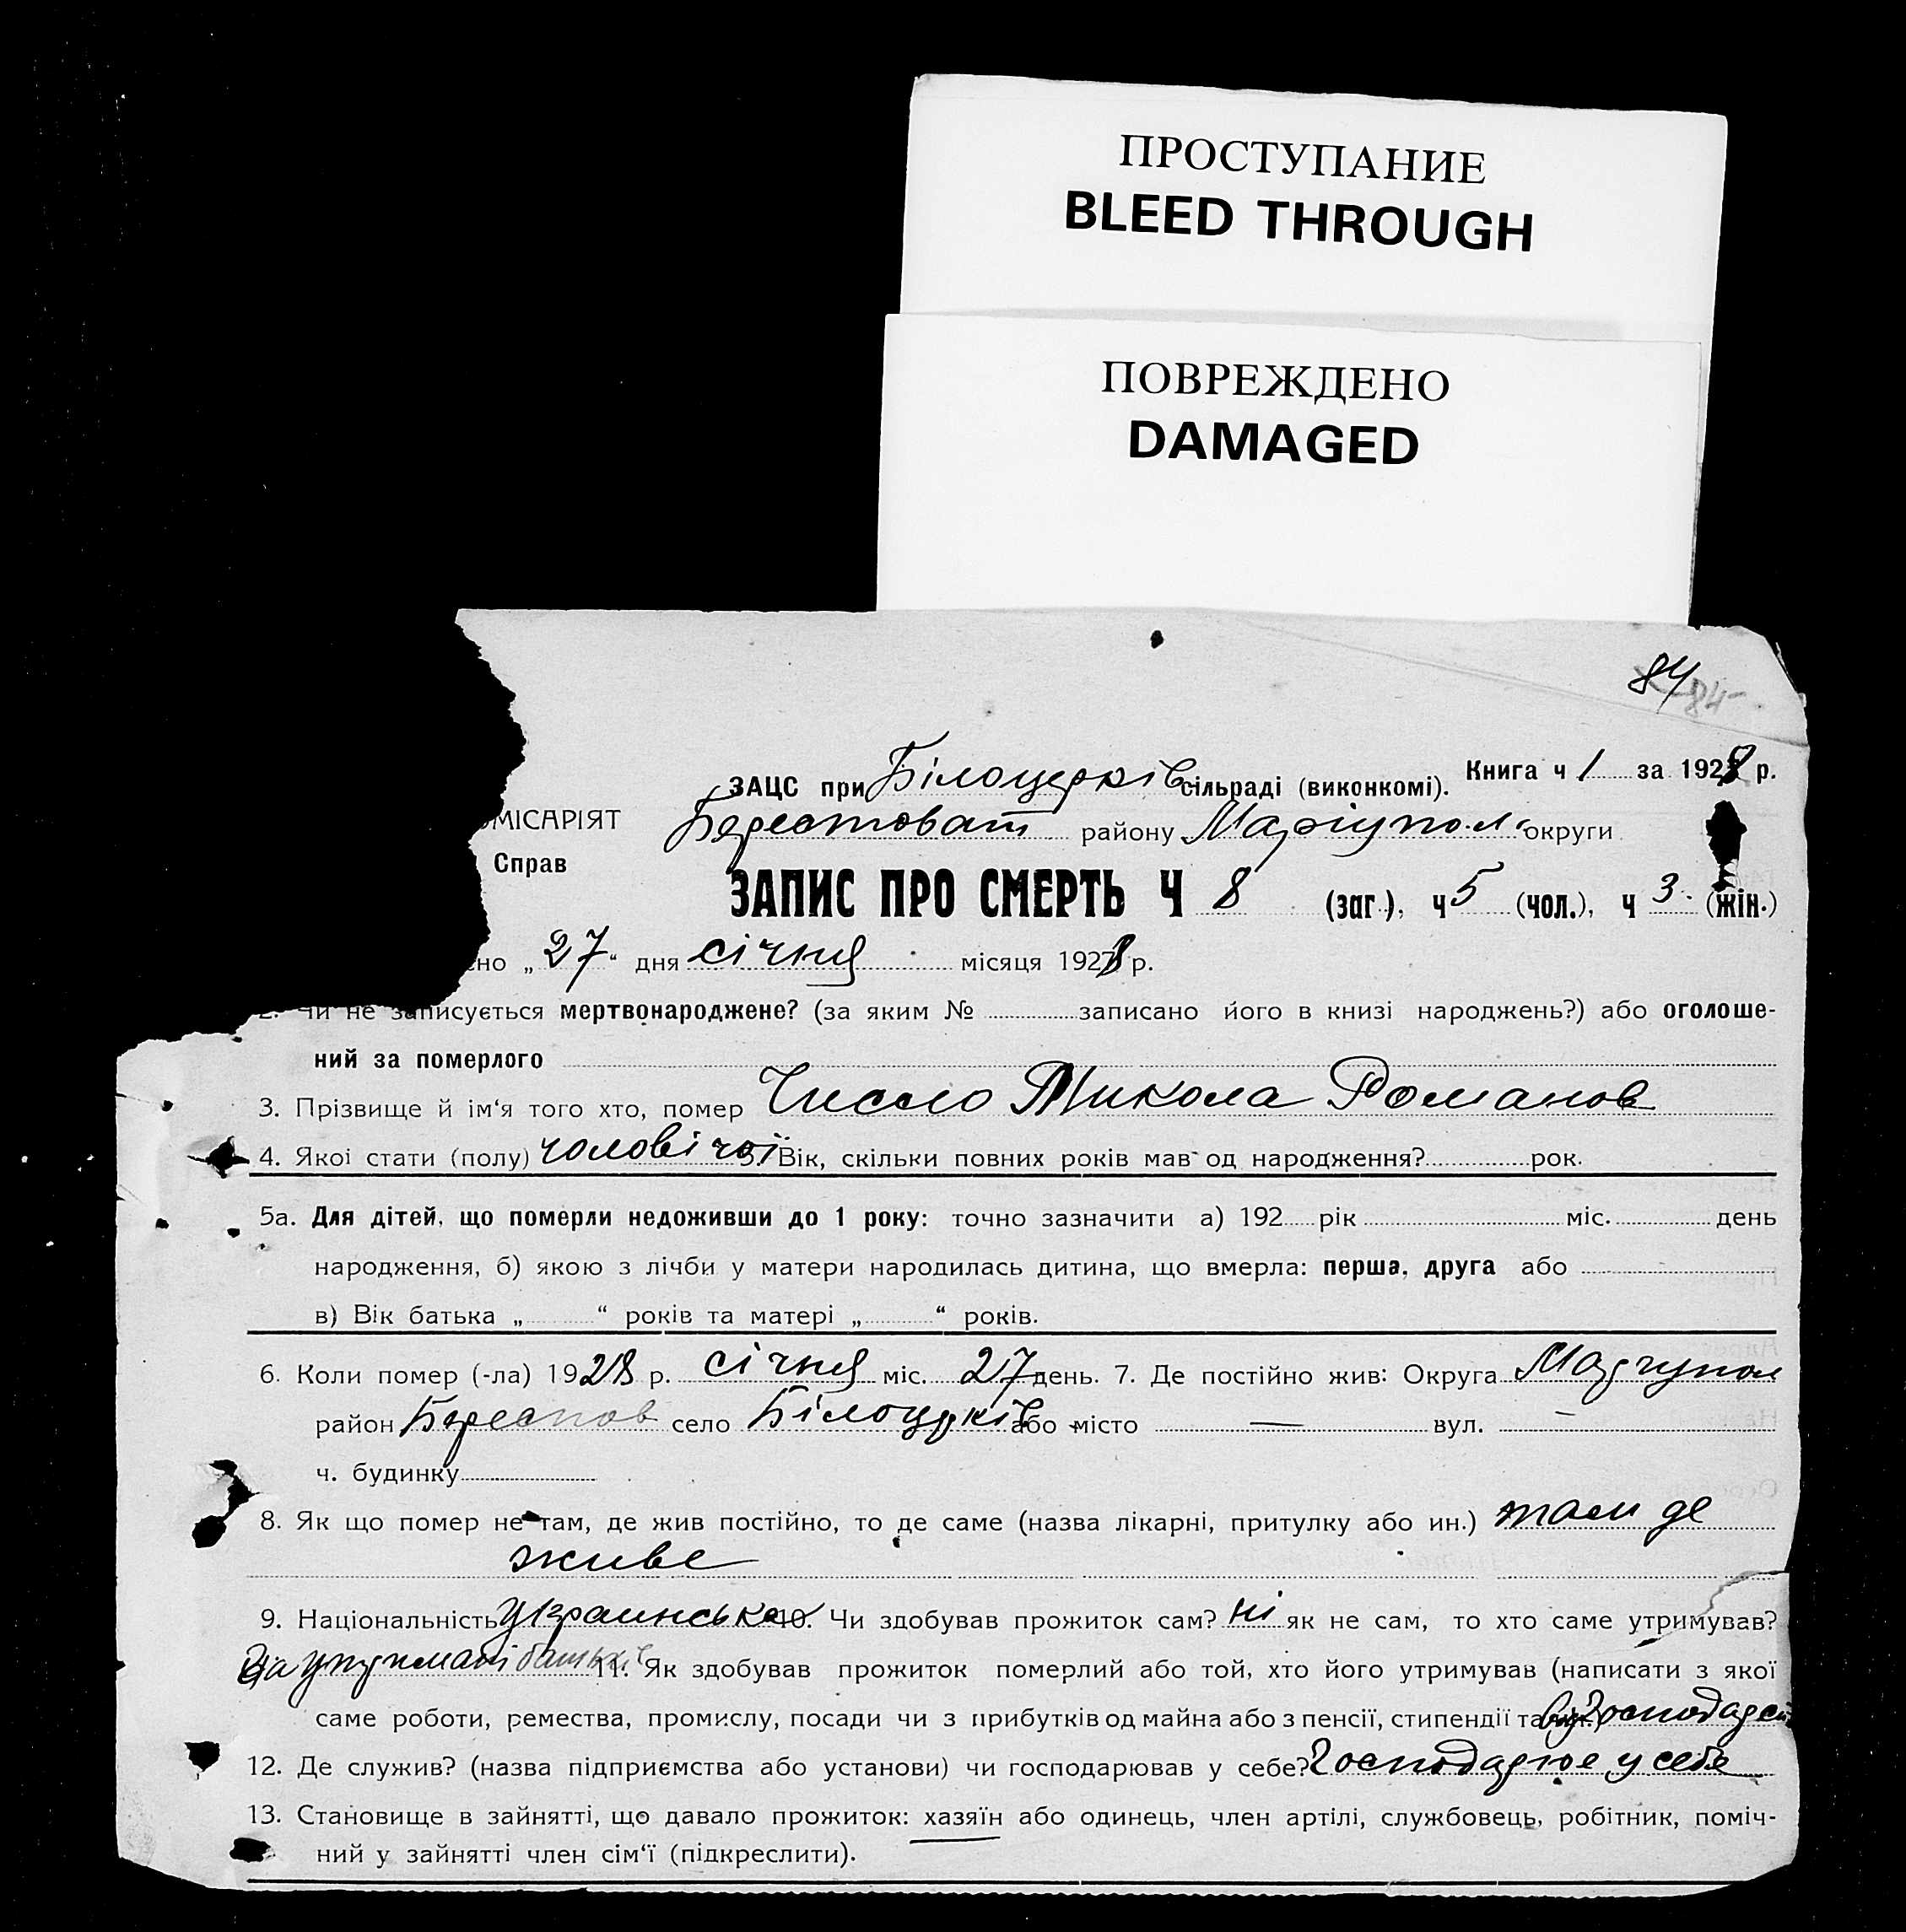 ПРОСТУПАНИЕ
BLEED THROUGH
ПОВРЕЖДЕНО
DAMAGED
84 84
ЗАЦС при Білоцерків сільраді (виконкомі). Книга ч 1 за 1928 р.
ОМІСАРІЯТ Берестоват району Маріупол. округи
Справ
ЗАПИС ПРО СМЕРТЬ Ч 8 (заг.), ч 5 (чол.), ч 3. (жін.)
но „27“ дня січня місяця 1928 р.
2. Чи не записується мертвонароджене? (за яким № записано його в книзі народжень?) або оголоше-
ний за померлого
3. Прізвище й ім‘я того хто, помер Число Микола Романов
4. Якоі стати (полу) чоловічої 5. Вік, скільки повних років мав од народження? рок.
5а. Для дітей, що померли недоживши до 1 року: точно зазначити а) 192 рік міс. день
народження, б) якою з лічби у матери народилась дитина, що вмерла: перша, друга або
в) Вік батька „ “ років та матері „ “ років.
6. Коли помер (-ла) 1928 р. січня міс. 27 день. 7. Де постійно жив: Округа Маріупол
район Берестов село Білоцерків або місто — вул. —
ч. будинку
8. Як що помер не там, де жив постійно, то де саме (назва лікарні, притулку або ин.) там де
живе
9. Національність Украинська 10. Чи здобував прожиток сам? ні як не сам, то хто саме утримував?
На утримані батьків 11. Як здобував прожиток померлий або той, хто його утримував (написати з якої
саме роботи, ремества, промислу, посади чи з прибутків од майна або з пенсії, стипендії та
12. Де служив? (назва підприємства або установи) чи господарював у себе? Господарює у себе
13. Становище в зайнятті, що давало прожиток: хазяїн або одинець, член артілі, службовець, робітник, поміч-
ний у зайнятті член сім‘ї (підкреслити).